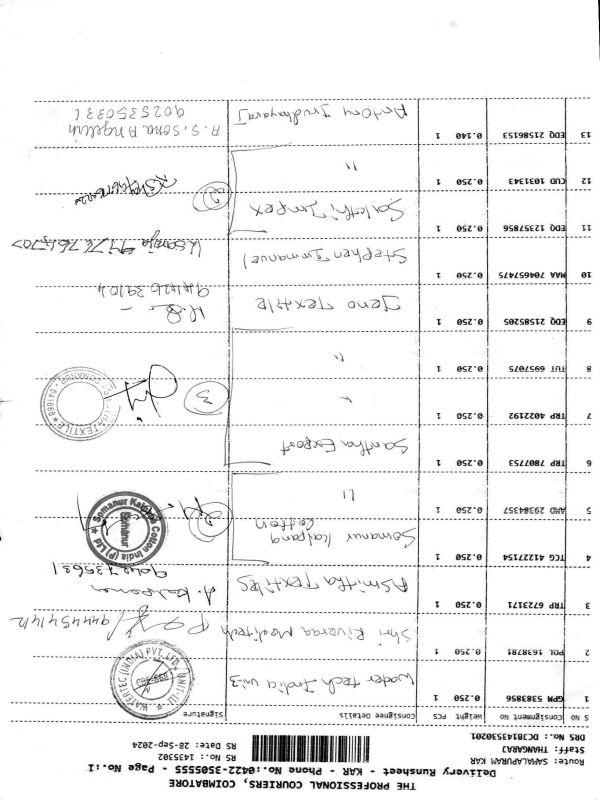 THE PROFESSIONAL COURIERS, COIMBATORE
Delivery Runsheet - KAR - Phone No.:0422-3505555 - Page No.:1
Route: SAMALAPURAM KAR
Staff: THANGARAJ
DRS No.: DCJB14353O201
RS No.: 1435302
RS Date: 28-Sep-2024
S NO Consignment NO Weight PCS Consignee Details Signature
1 GPM 5383856 0.250 1 Water tech India uni-3
WATERTEC (INDIA) PVT. LTD. UNIT-III
2 POL 1638781 0.250 1 Shri Riveraa Meditech
3 TRP 6723171 0.250 1 Asmitha Textiles A. Kalpana
4 TCG 41227154 0.250 1 Somanur Kalpana Cotton
Somanur Kalpana Cotton India (P) Ltd Somanur
5 AMD 29384357 0.250 1 "
6 TRP 7807753 0.250 1 Santha Export
7 TRP 4022192 0.250 1 " 3
TEXTILE SOMANUR - 641668
8 TUT 6957075 0.250 1 "
9 EDQ 21585205 0.250 1 Jeno Textile
9442639104
10 MAA 704657475 0.250 1 Stephen Immanuel
11 EDQ 12357856 0.250 1 Sakthi Impex 2
12 CUD 1031343 0.250 1 "
13 EDQ 21586153 0.140 1 Antony Irudhayaraj A. S. Sona Angelin
9025350331